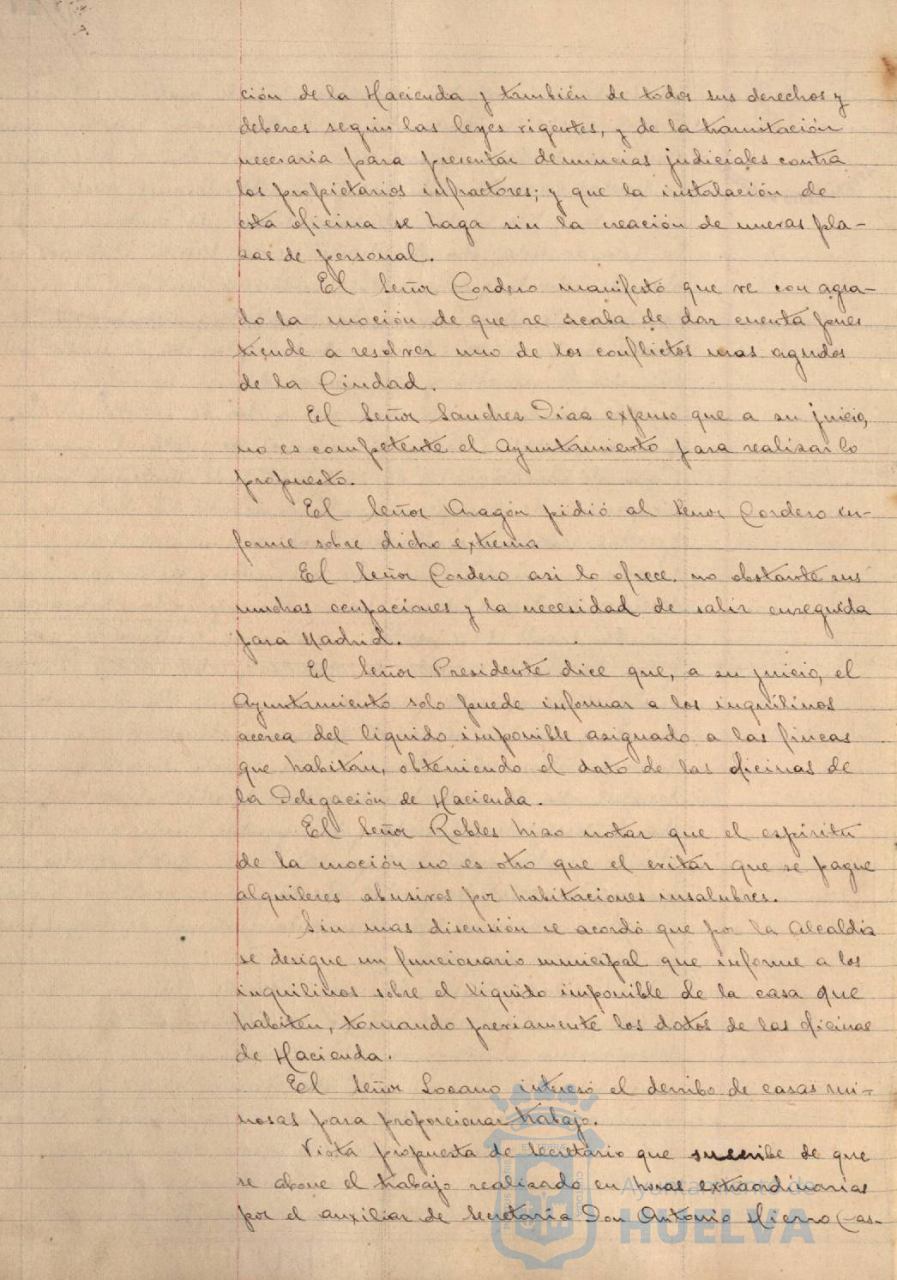 ción de la Hacienda y también de todos sus derechos y
deberes según las leyes vigentes, y de la tramitación
necesaria para presentar denuncias judiciales contra
los propietarios infractores; y que la instalación de
esta oficina se haga sin la creación de nuevas pla-
zas de personal.
El Señor Cordero manifestó que ve con agra-
do la moción de que se acaba de dar cuenta pues
tiende a resolver uno de los conflictos mas agudos
de la Ciudad.
El Señor Sanchez Diaz expuso que a su juicio,
no es competente el Ayuntamiento para realizar lo
propuesto.
El Señor Aragón pidió al Señor Cordero in-
forme sobre dicho extremo
El Señor Cordero asi lo ofrece, no obstante sus
muchas ocupaciones y la necesidad de salir enseguida
para Madrid.
El Señor Presidente dice que, a su juicio, el
Ayuntamiento solo puede informar a los inquilinos
acerca del líquido imponible asignado a las fincas
que habitan, obteniendo el dato de las oficinas de
la Delegación de Hacienda.
El Señor Robles hizo notar que el espíritu
de la moción no es otro que el evitar que se pague
alquileres abusivos por habitaciones insalubres.
Sin mas discusión se acordó que por la Alcaldía
se designe un funcionario municipal que informe a los
inquilinos sobre el líquido imponible de la casa que
habiten, tomando previamente los datos de las oficinas
de Hacienda.
El Señor Lozano interesó el derribo de casas rui-
nosas para proporcionar trabajo.
Vista propuesta de Secretario que suscribe de que
se abone el trabajo realizado en horas extraordinarias
por el auxiliar de Secretaría Don Antonio Hierro Cas-
Ayuntamiento de
HUELVA